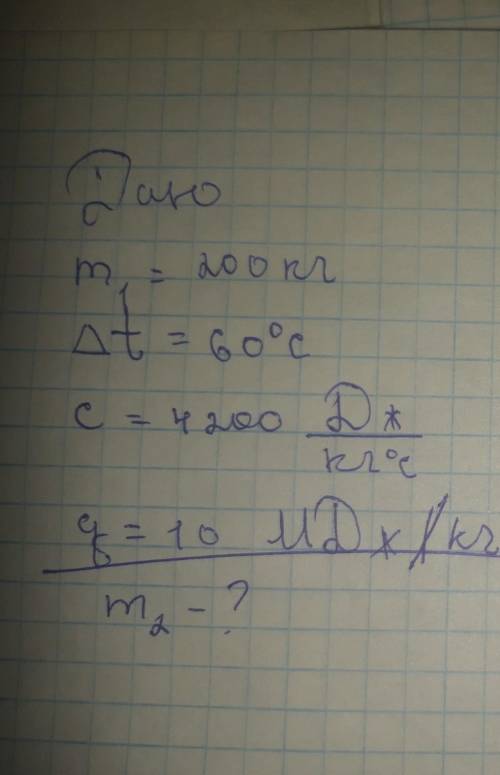 Дано
m₁ = 200 кг
Δt = 60°c
c = 4200 Дж/кг°c
q = 10 МДж/кг
m₂ - ?